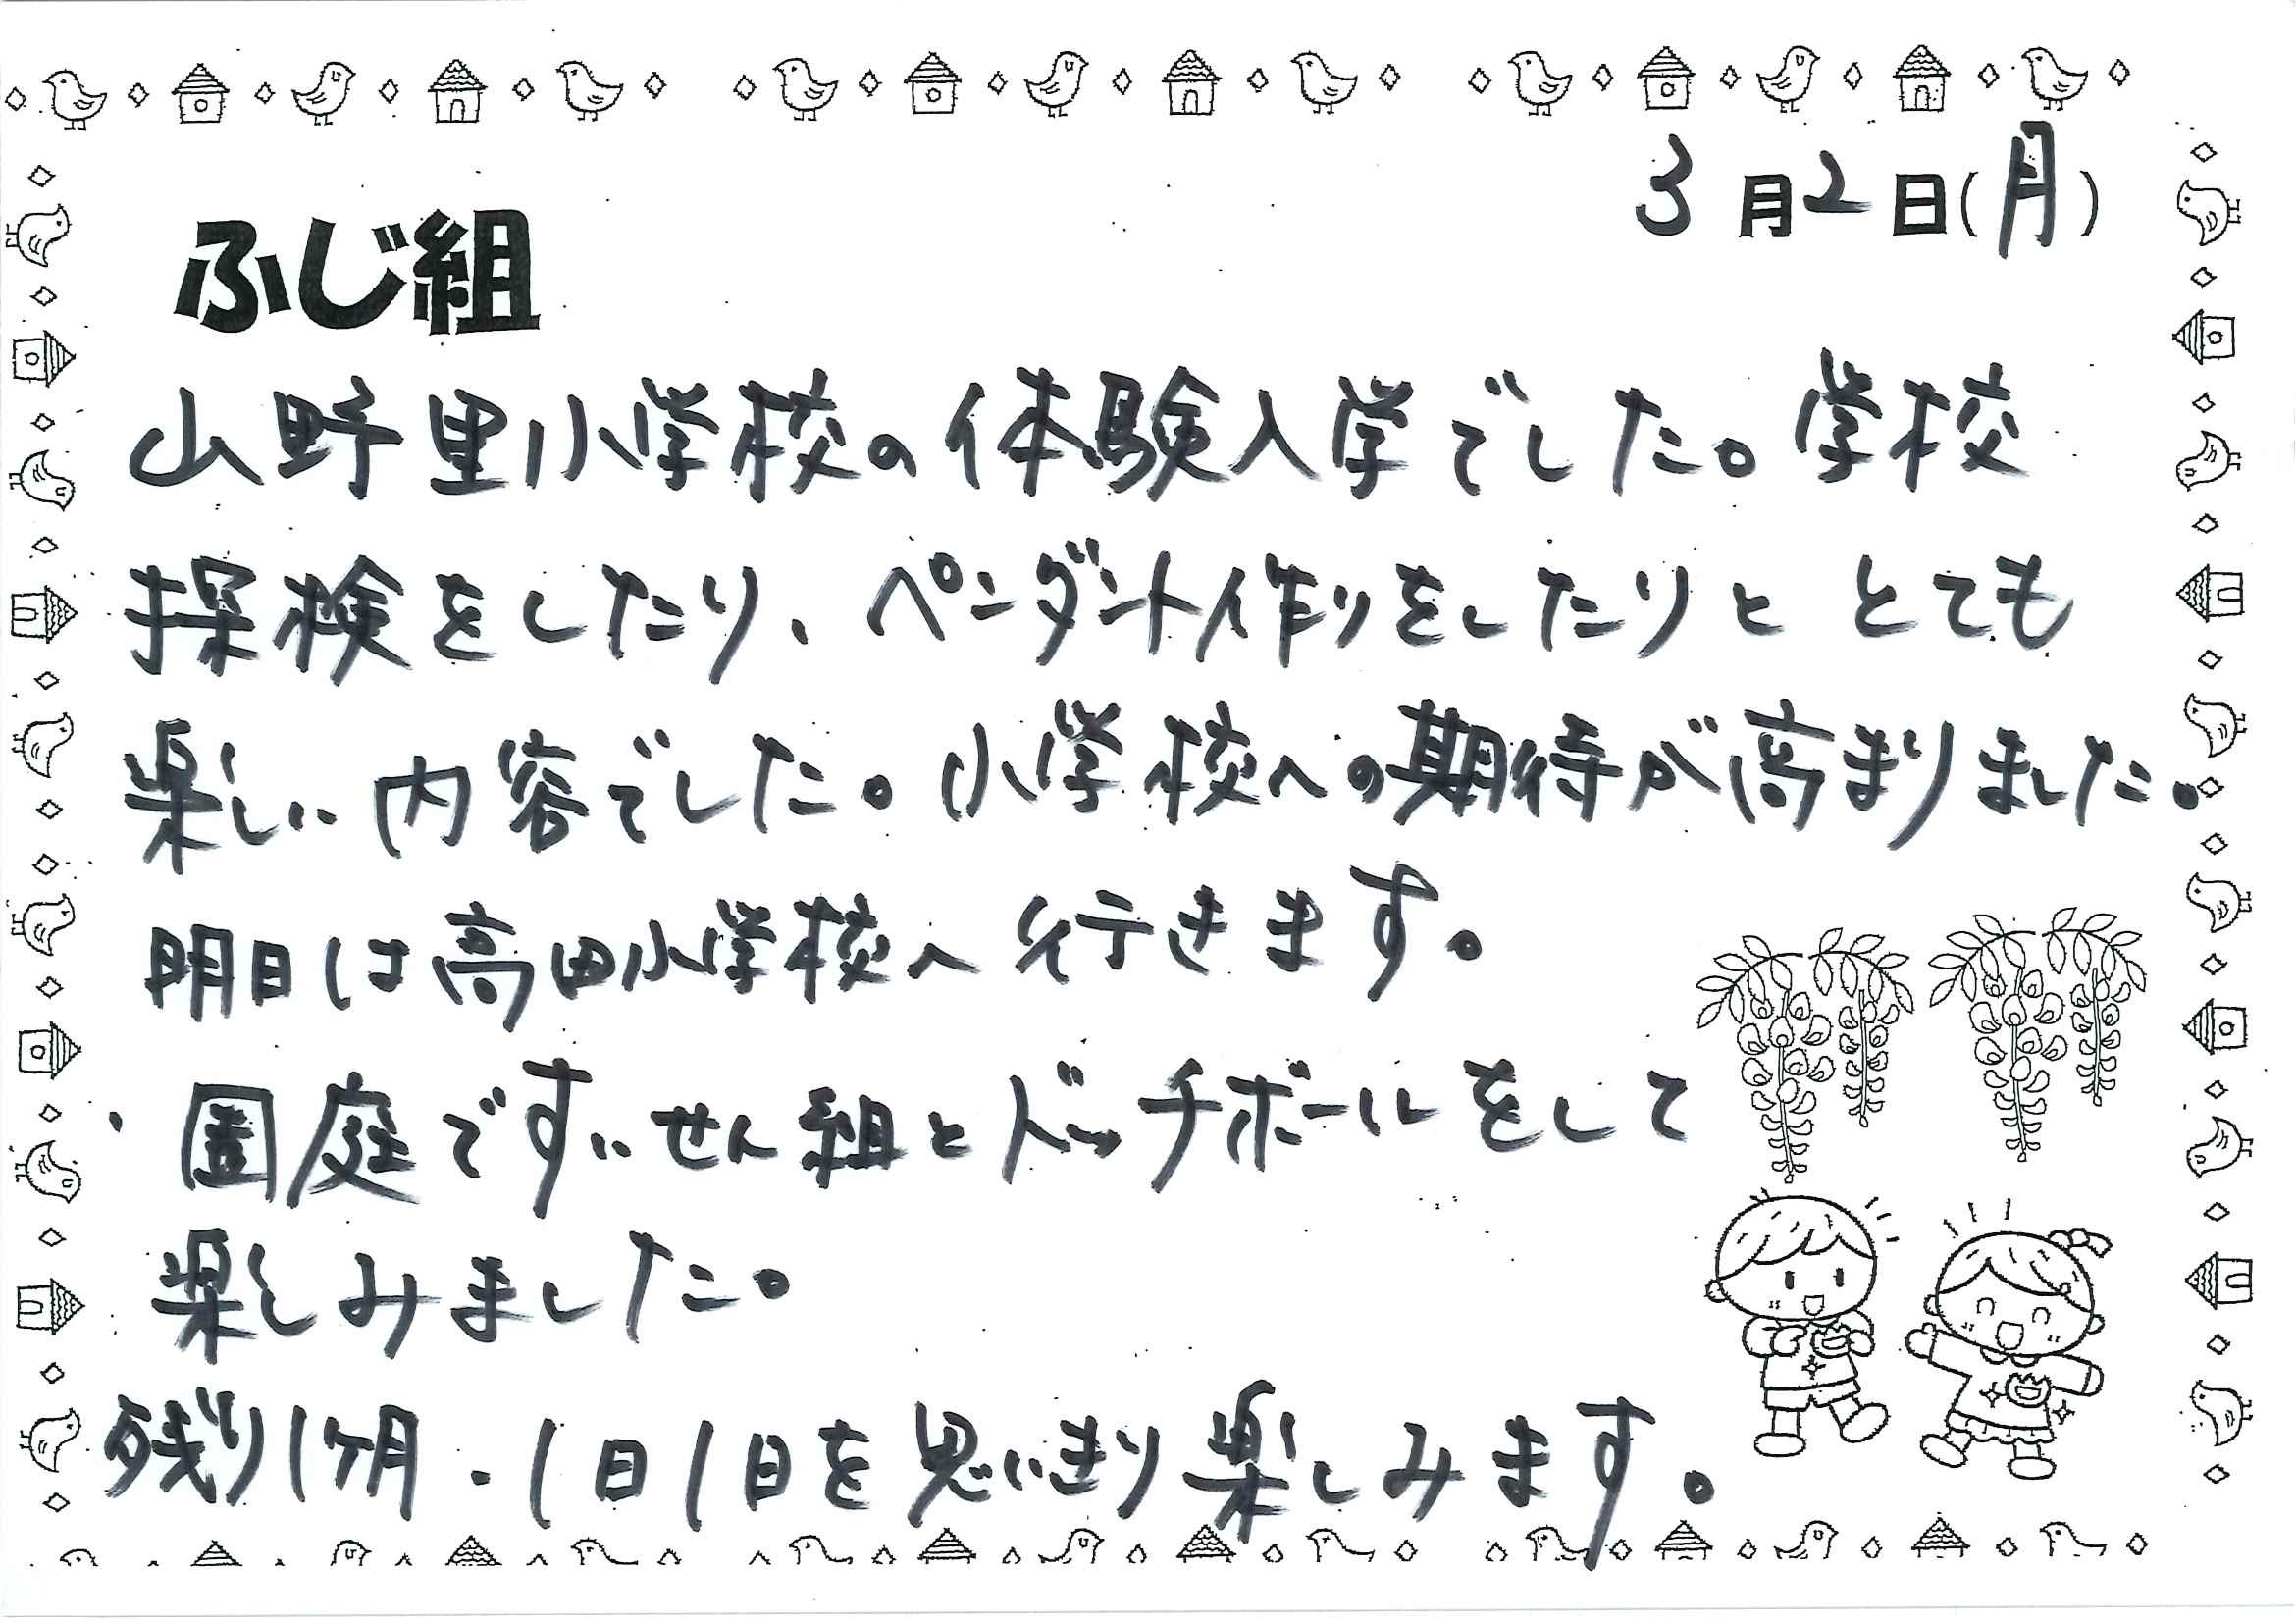 3月2日(月)
ふじ組
山野里小学校の体験入学でした。学校
探検をしたり、ペンダント作りをしたりと とても
楽しい内容でした。小学校への期待が高まりました。
明日は高田小学校へ行きます。
・園庭ですいせん組とドッチボールをして
楽しみました。
残り1ヶ月、1日1日を思いきり楽しみます。